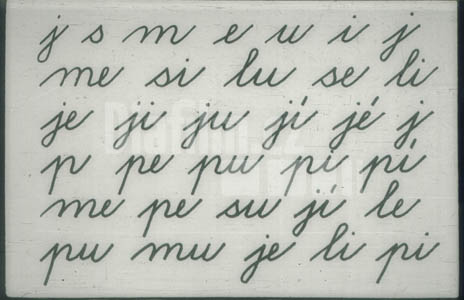 j s m e u i j
me si lu se li
je ji ju jí jé j
p pe pu pi pí
me pe su jí le
pu mu je li pi